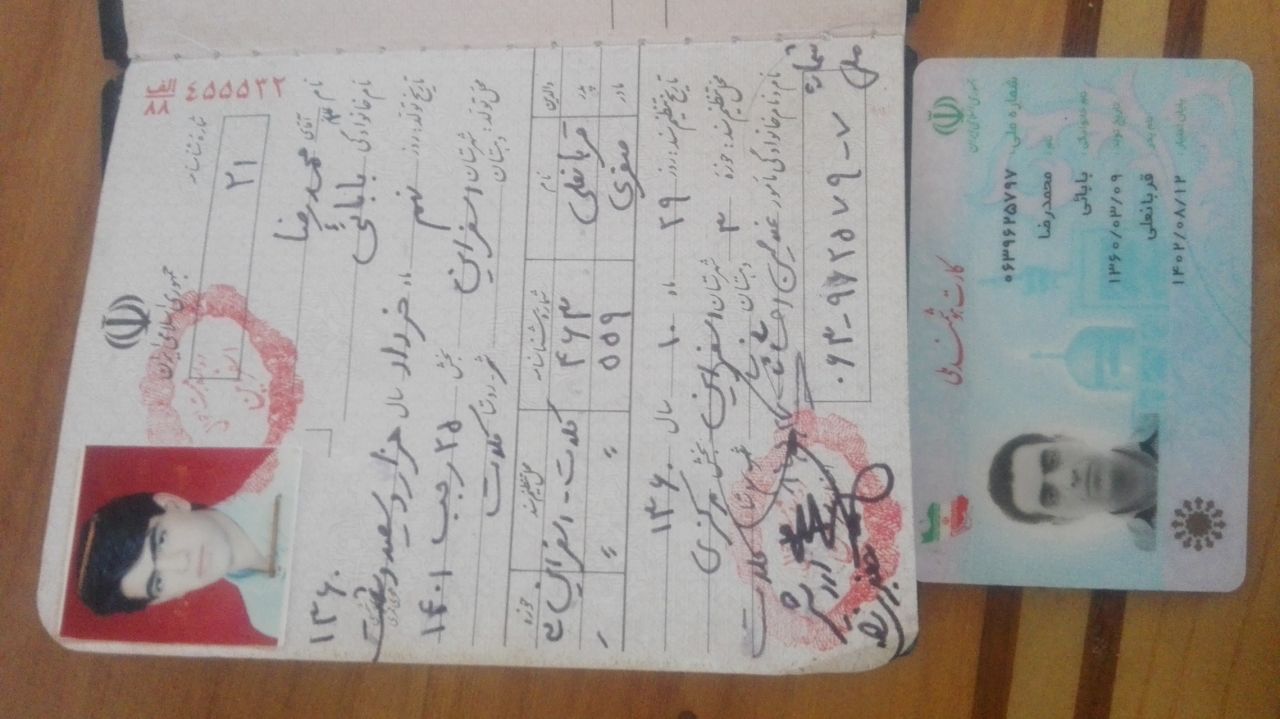 الف
۸۸ ۴۵۵۵۳۲
جمهوری اسلامی ایران
شماره شناسنامه ۲۱
نام آقای محمدرضا
نام خانوادگی بابائی
تاریخ تولد: روز نهم ماه خرداد سال هزار و سیصد و شصت ۱۳۶۰
۲۵ رجب ۱۴۰۱
محل تولد: شهرستان اسفراین بخش
دهستان شهر روستا کلات
والدین نام شماره شناسنامه محل تنظیم سند حوزه
پدر قربانعلی ۴۶۳ کلات - اسفراین ۳
مادر صغری ۵۵۹ 〃 〃
تاریخ تنظیم سند: روز ۲۹ ماه ۱۰ سال ۱۳۶۰
محل تنظیم سند: حوزه ۳ شهرستان اسفراین بخش مرکزی
دهستان شهر روستا کلات
نام و نام خانوادگی مأمور
شماره ملی ۰۶۳-۹۶۲۵۷۹-۷
جمهوری اسلامی ایران
کارت هوشمند ملی
شماره ملی: ۰۶۳۹۶۲۵۷۹۷
نام: محمدرضا
نام خانوادگی: بابائی
تاریخ تولد: ۱۳۶۰/۰۳/۰۹
نام پدر: قربانعلی
پایان اعتبار: ۱۴۰۲/۰۸/۱۲